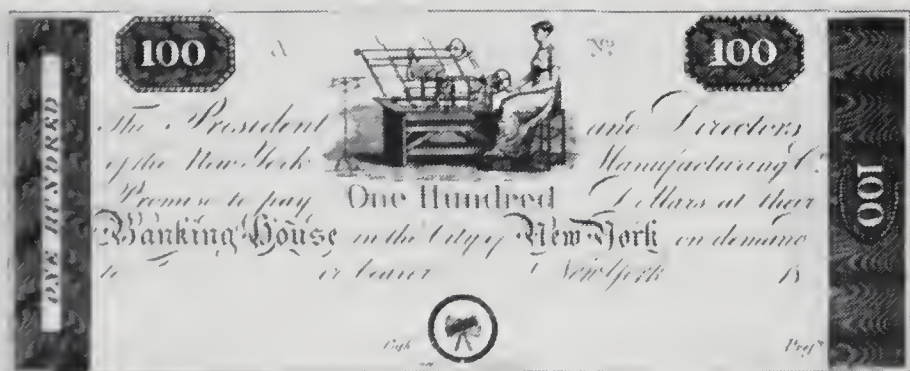 100 A Nº 100
ONE HUNDRED
The President and Directors
of the New York Manufacturing Cº
Promise to pay One Hundred Dollars at their
Banking House in the City of New York on demand
to or bearer New York 18
100
Cashr Presᵗ